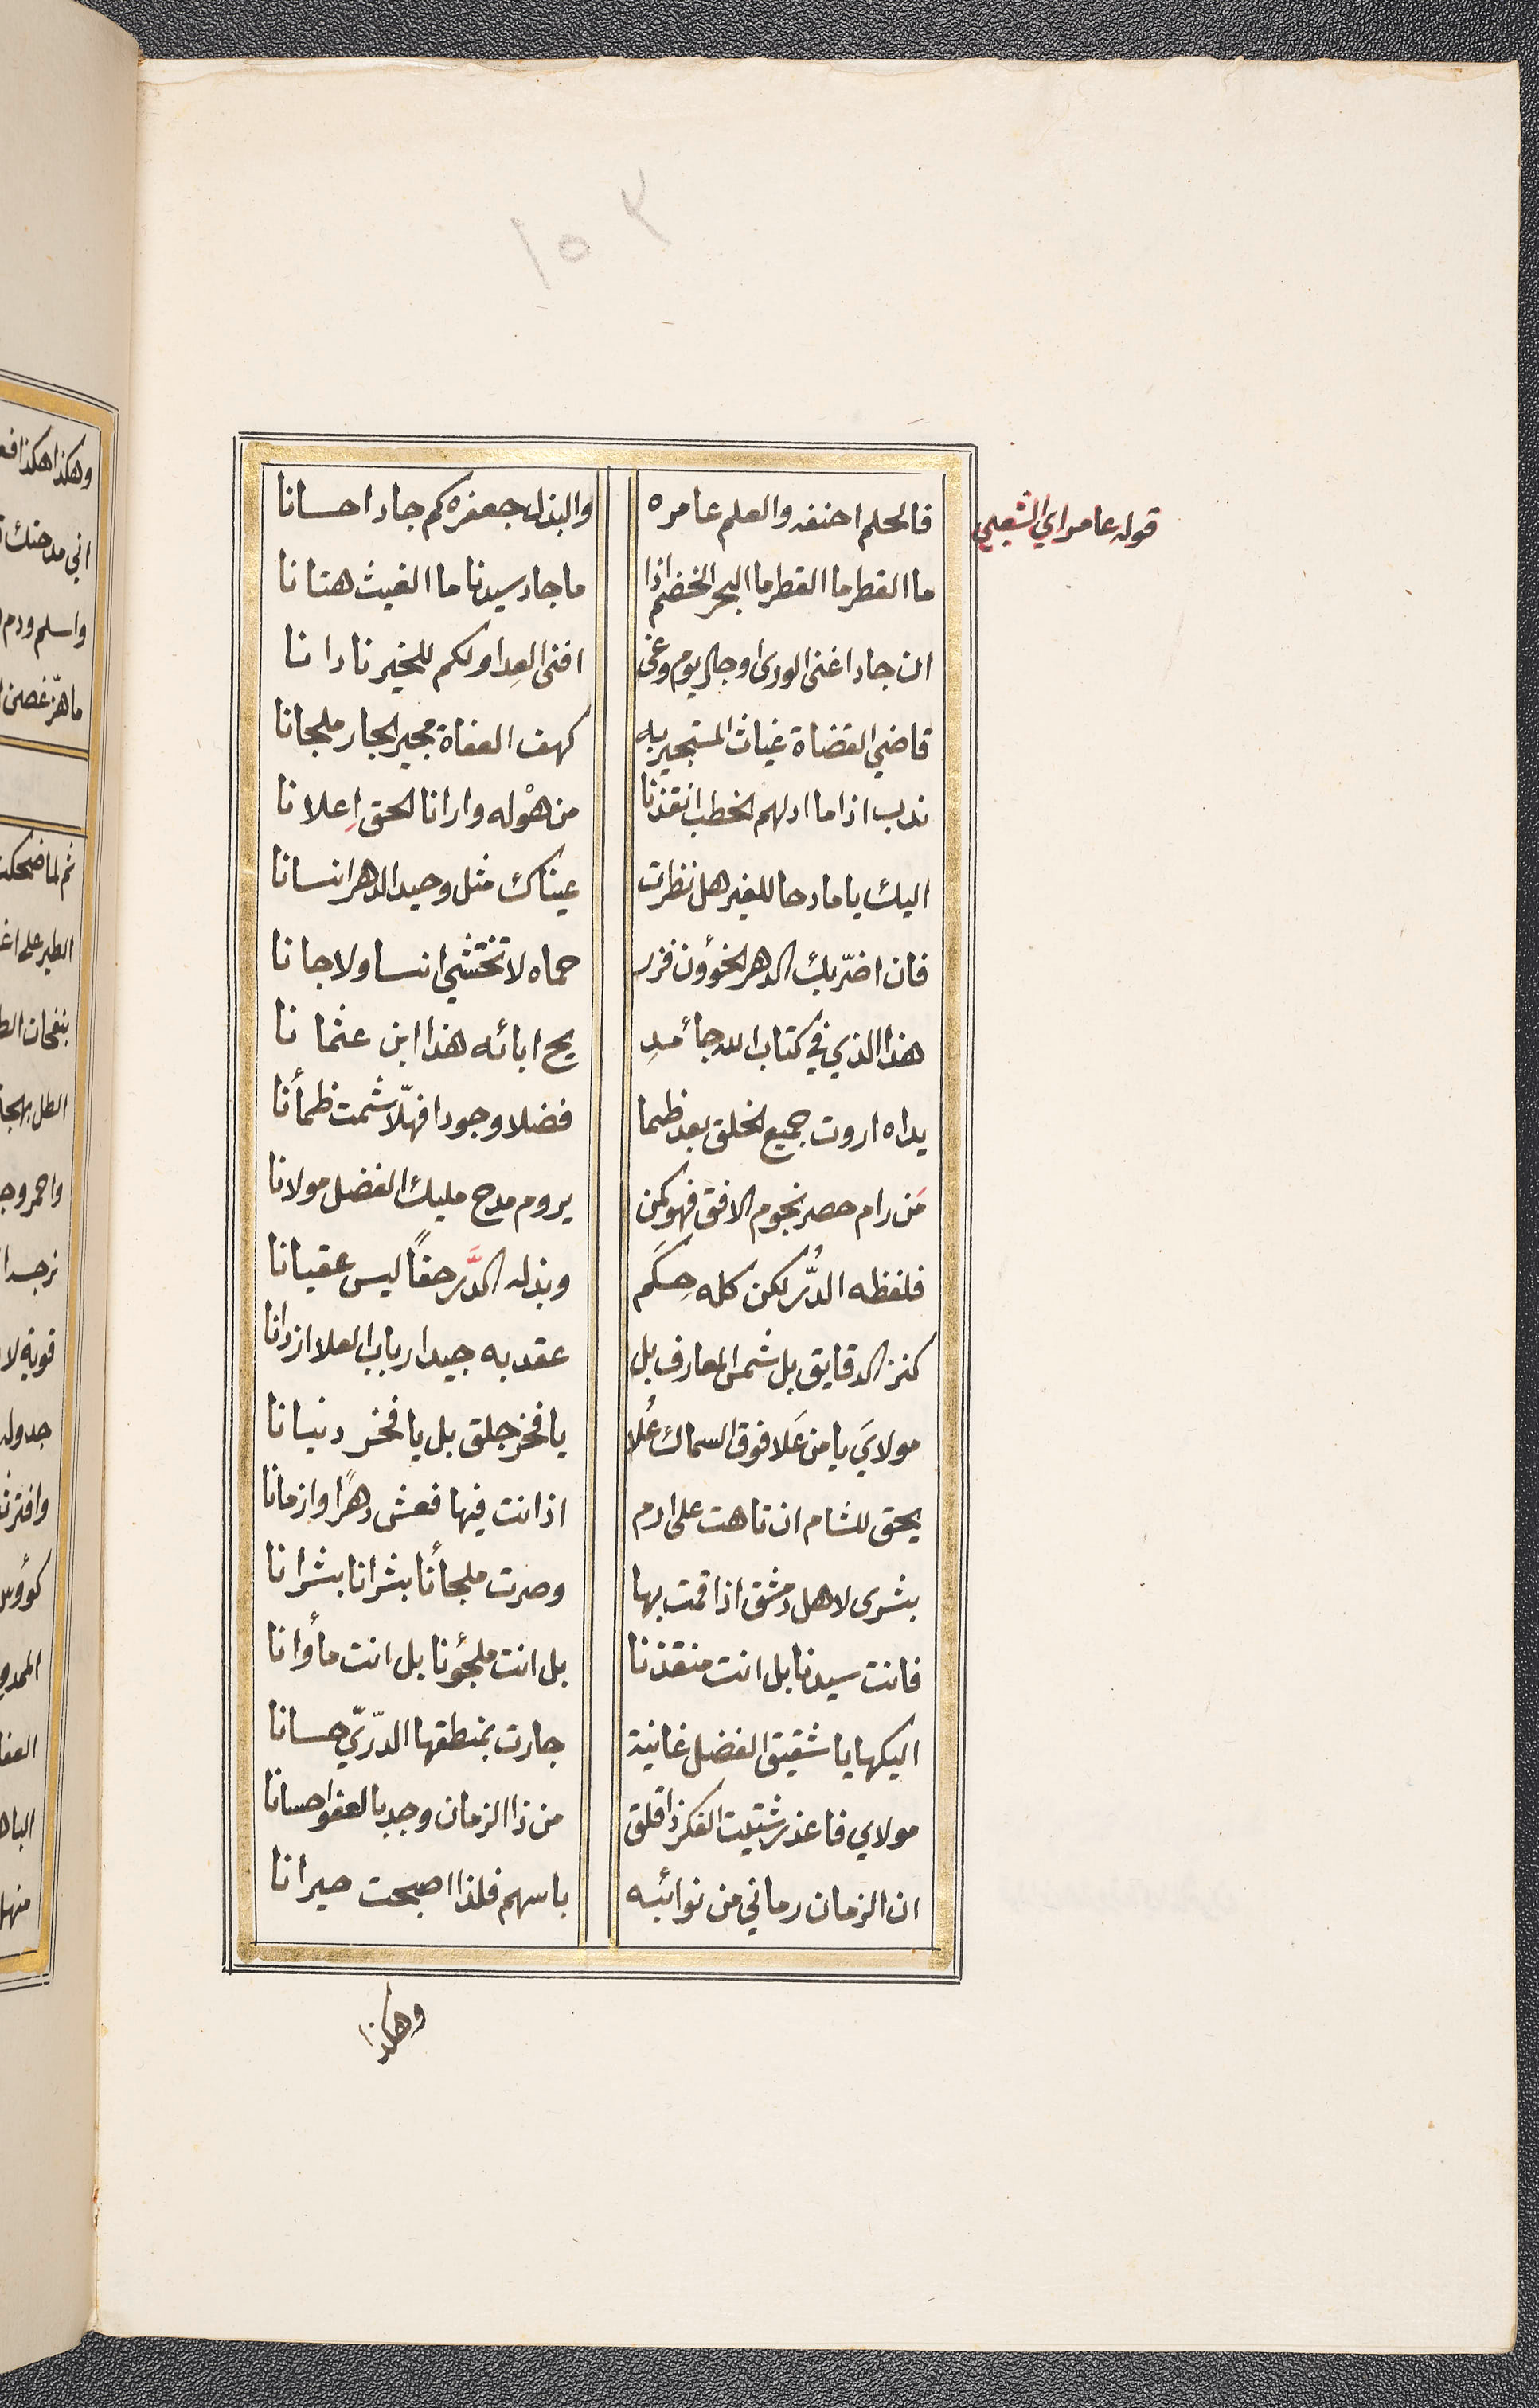 ١٥٢
فالحلم احنفه والعلم عامره والبذل جعفره كم جاد احسانا
قوله عامر اي الشعبي
ما القطر ما القطر ما البحر الخضم اذا ما جاد سيدنا ما الغيث هتانا
ان جاد اغنى الورى او جال يوم وغى افنى العِدا ولكم للخير نادانا
قاضي القضاة غياث المستجير به كهف العفاة مجير الجار ملجانا
ندب اذا ما ادلهم الخطب انقذنا من هوْله وارانا الحق اِعلانا
اليك يا مادحا للغير هل نظرت عيناك مثل وحيد الدهر انسانا
فان اضرّ بك الدهر الخؤون فزر حماه لا تختشي انسا ولا جانا
هذا الذي في كتاب الله جا مـد يح ابائه هذا ابن عثمانا
يداه اروت جميع الخلق بعد ظما فضلا وجودا فهلّا شمت ظمأنا
مَن رام حصر نجوم الافق فهو كمن يروم مدح مليك الفضل مولانا
فلفظه الدُّر لكن كله حِكَم وبذله الدَّر حقاً ليس عقيانا
كنز الدقايق بل شمس المعارف بل عقد به جيد ارباب العلا ازدانا
مولايَ يا من عَلا فوق السماك عُلا يا فخر جلق بل يا فخر دنيانا
يحق للشام ان تاهت على ارم اذ انت فيها فعش دهرًا وازمانا
بشرى لاهل دمشق اذ اقمت بها وصرت ملجأنا بشرانا بشرانا
فانت سيدنا بل انت منقذنا بل انت ملجؤنا بل انت مأوانا
اليكها يا شقيق الفضل غانية جارت بمنطقها الدّريّ حسانا
مولاي فاعذر شتيت الفكر ذا قلق من ذا الزمان وجد بالعفو احسانا
ان الزمان رماني من نوائبه باسهم فلذا اصبحت حيرانا
وهكذا